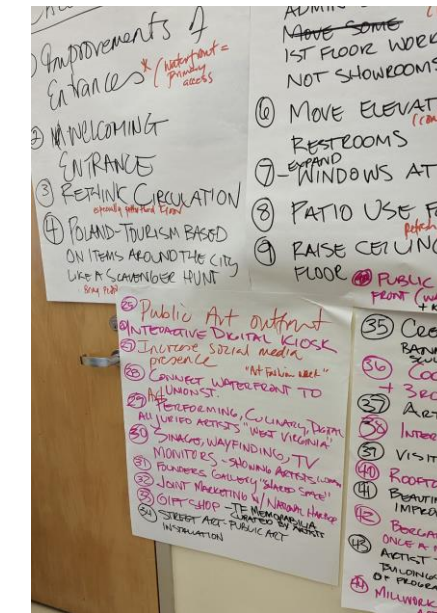 ① Improvements of
Entrances * (Waterfront =
primary
access
② WELCOMING
ENTRANCE
③ RETHINK CIRCULATION
④ POLAND-TOURISM BASED
ON ITEMS AROUND THE CITY
LIKE A SCAVENGER HUNT
ADMIN
MOVE SOME
1ST FLOOR WORK
NOT SHOWROOMS
⑥ MOVE ELEVAT
RESTROOMS
EXPAND
⑦ - WINDOWS AT
⑧ PATIO USE F
⑨ RAISE CEILING
FLOOR
PUBLIC
FRONT
㉕ Public Art outfront
INTERACTIVE DIGITAL KIOSK
㉗ Increase social media
presence "Art Fashion week"
㉘ CONNECT WATERFRONT TO
Art UNION ST.
㉙ PERFORMING, CULINARY, DIGITAL
ALL JURIED ARTISTS "WEST VIRGINIA"
㉚ SINAGE, WAYFINDING, TV
MONITORS - SHOWING ARTISTS
㉛ FOUNDERS GALLERY "SHARED SPACE"
㉜ JOINT MARKETING W/ NATIONAL HARBOR
㉝ GIFT SHOP - TF MEMORABILIA
CURATED BY ARTISTS
㉞ STREET ART - PUBLIC ART
INSTALLATION
㉟
㊱
+ 3RD
㊲ ART
㊳ INTER
㊴ VISIT
㊵ ROOFTO
㊶ BEAUTI
IMPRO
㊷
ONCE A
㊸ ARTIST -
BUILDINGS
OF PROGRA
㊹ MILLWORK